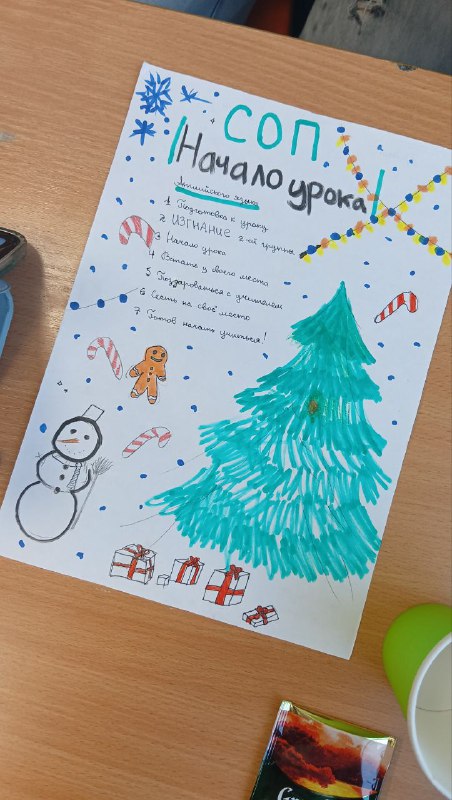 СОП
Начало урока!
Английского языка
1 Подготовка к уроку
2 ИЗГНАНИЕ 2-ой группы
3 Начало урока
4 Встать у своего места
5 Поздароваться с учителем
6 Сесть на своё место
7 Готов начать учиться!